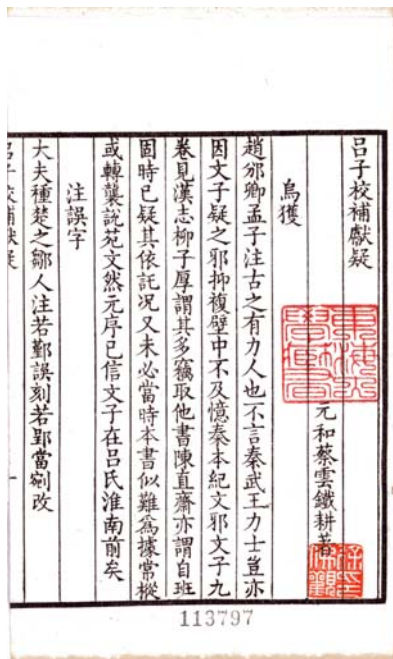 呂子校補獻疑
元和蔡雲鐵耕著
烏獲
趙邠卿孟子注古之有力人也不言秦武王力士豈亦
因文子疑之邪抑複壁中不及憶秦本紀文邪文子九
卷見漢志柳子厚謂其多竊取他書陳直齋亦謂自班
固時已疑其依託况又未必當時本書似難爲據常樅
或轉襲說苑文然元序已信文子在呂氏淮南前矣
注誤字
大夫種楚之鄒人注若鄞誤刻若郢當剜改
呂子校補獻疑
一
113797